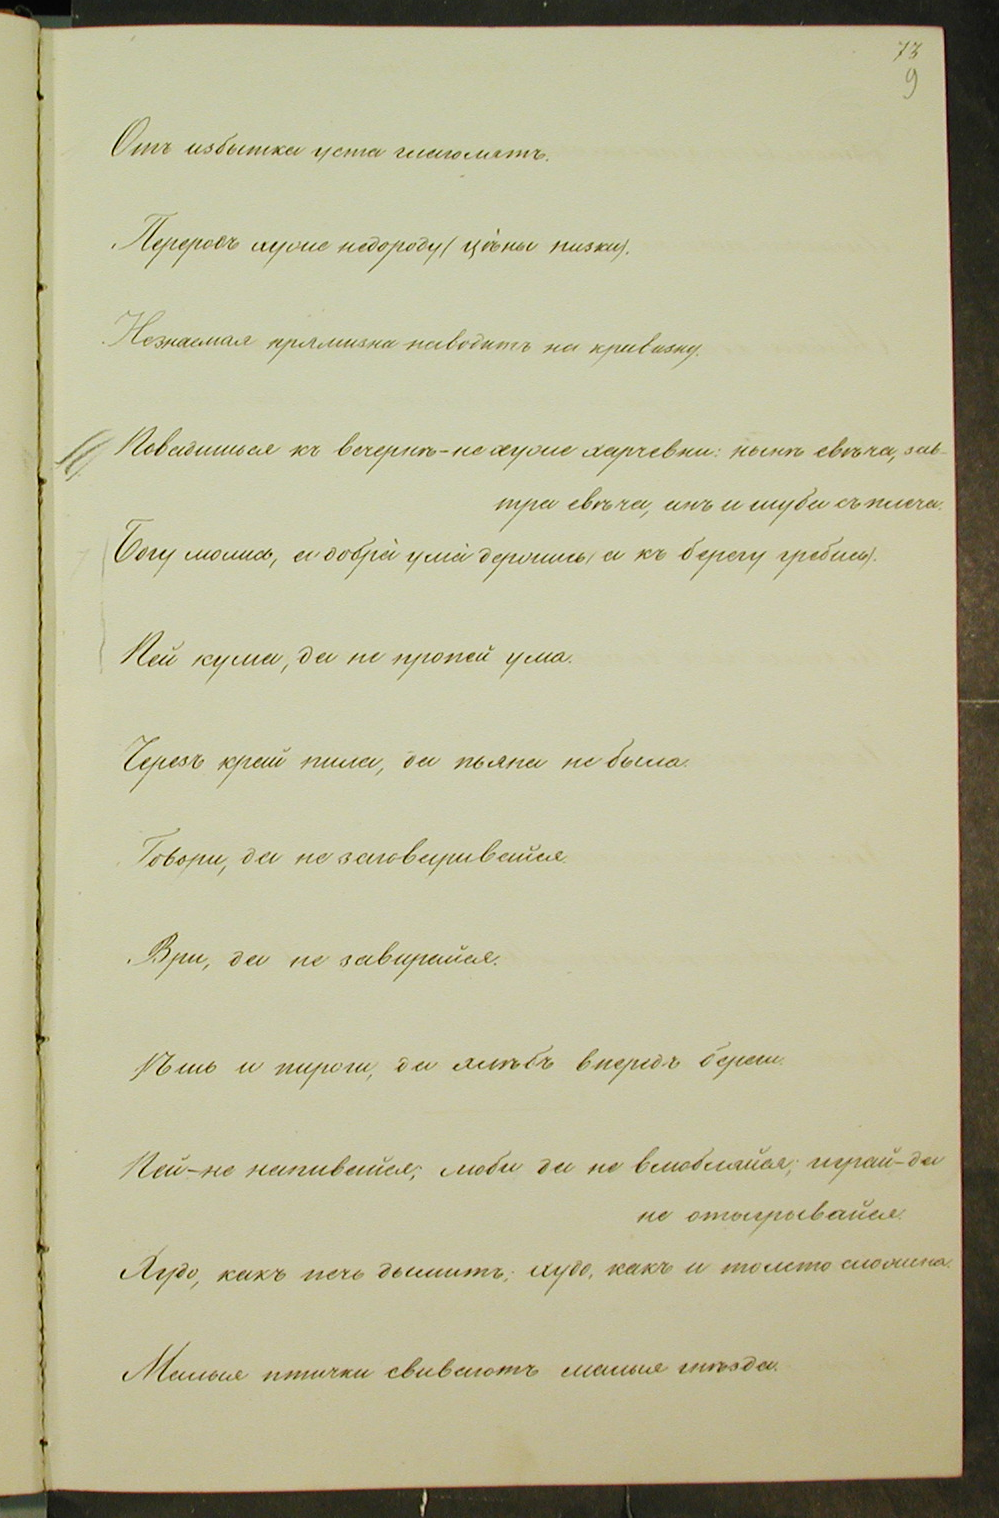 73
9
Отъ избытка уста глаголятъ.
Перерość хуже недороду (цѣны низки).
Незнаемая прямизна наводитъ на кривизну.
Повадишься къ вечернѣ - не хуже харчевни: нынѣ свѣча, зав-
тра свѣча, анъ и шуба съ плеча.
Богу молись, а добра ума держись (а къ берегу гребись).
Пей кума, да не пропей ума.
Черезъ край пила, да пьяна не была.
Говори, да не заговаривайся.
Ври, да не завирайся.
Ѣшь и пироги, да хлѣбъ впередъ береги.
Пей - не напивайся; люби да не влюбляйся; играй - да
не отыгрывайся.
Худо, какъ печь дымитъ; худо, какъ и толсто сложена.
Малыя птички свиваютъ малыя гнѣзда.